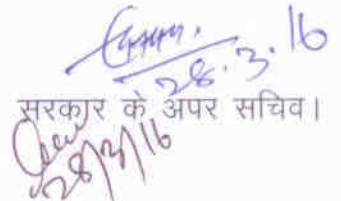 28.3.16
सरकार के अपर सचिव।
28/3/16